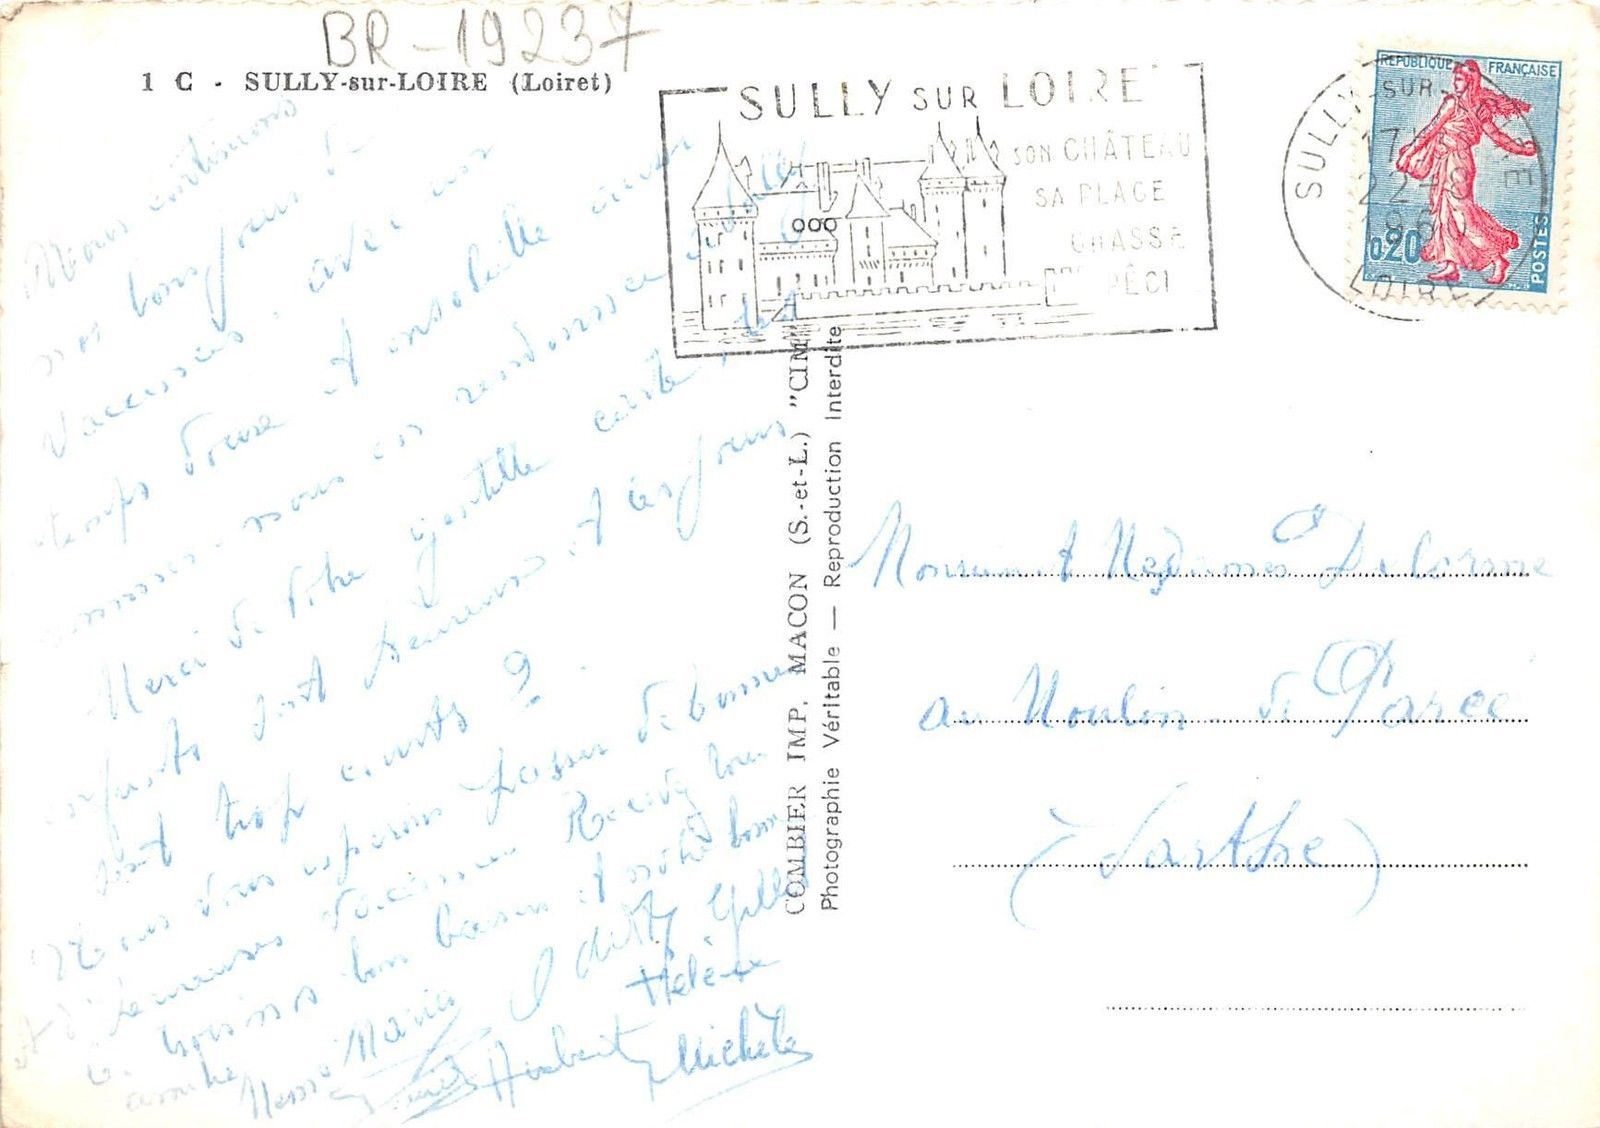 BR-19237
1 C - SULLY-sur-LOIRE (Loiret)
SULLY SUR LOIRE
SON CHÂTEAU
SA PLAGE
CHASSE
PÊCHE
SULLY-SUR-LOIRE
17
22-8
1960
LOIRET
RÉPUBLIQUE FRANÇAISE
0,20
POSTES
Nous continuons
nos bons jours de
vacances avec un
temps doux et ensoleillé
nous en
Merci de votre gentille carte, les
enfants sont heureux et les jours
sont trop courts ?
Nous vous espérons passer de bonnes
et d'heureuses vacances. Recevez tous
bons baisers et notre bonne
Mémé Marie Edith Gilles
Hubert Hélène
Michèle
COMBIER IMP. MACON (S.-et-L.) "CIM"
Photographie Véritable — Reproduction Interdite
Monsieur et Mesdames Delorme
au Moulin de Parcé
(Sarthe)